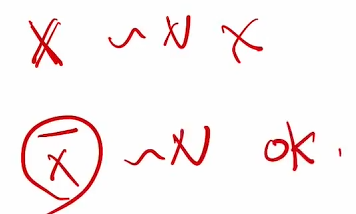 X ~ N X
x̄ ~ N OK.